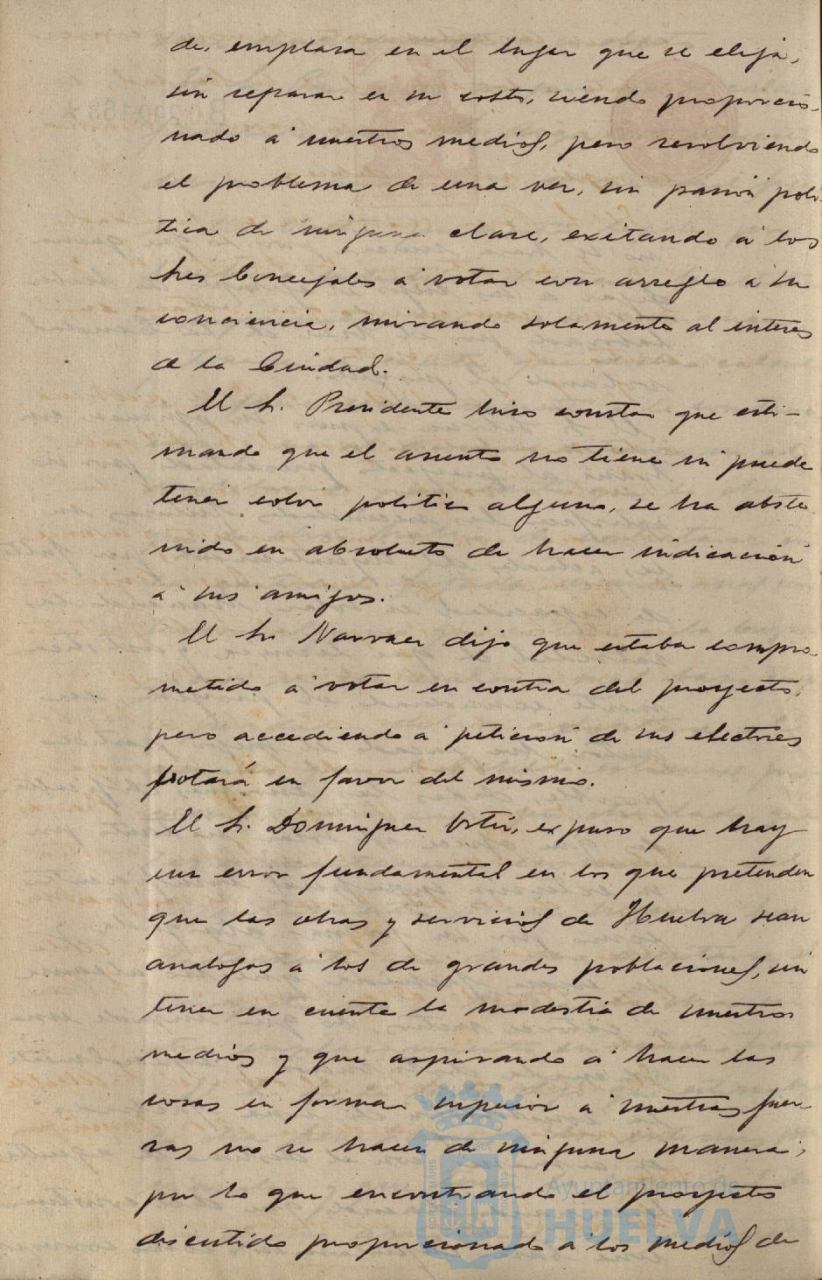 de, emplasa en el lugar que se elija,
sin reparar en su costo, siendo proporcio-
nado á nuestros medios, pero resolviendo
el problema de una vez, sin pasión polí-
tica de ninguna clase, exitando á los
Sres Concejales á votar con arreglo á su
conciencia, mirando solamente al interes
de la Ciudad.
El Sr. Presidente hizo constar que esti-
mando que el asunto no tiene ni puede
tener color politico alguno, se ha abste
nido en absoluto de hacer indicación
á sus amigos.
El Sr. Narvaez dijo que estaba compro
metido á votar en contra del proyecto,
pero accediendo á petición de sus electores
votará en favor del mismo.
El Sr. Dominguez Ortiz, expuso que hay
un error fundamental en los que pretenden
que las obras y servicios de Huelva sean
analogos á los de grandes poblaciones, sin
tener en cuenta la modestia de nuestros
medios y que aspirando á hacer las
cosas en forma superior á nuestras fuer
zas no se hacen de ninguna manera;
por lo que encontrando el proyecto
discutido proporcionado á los medios de
Ayuntamiento de
HUELVA